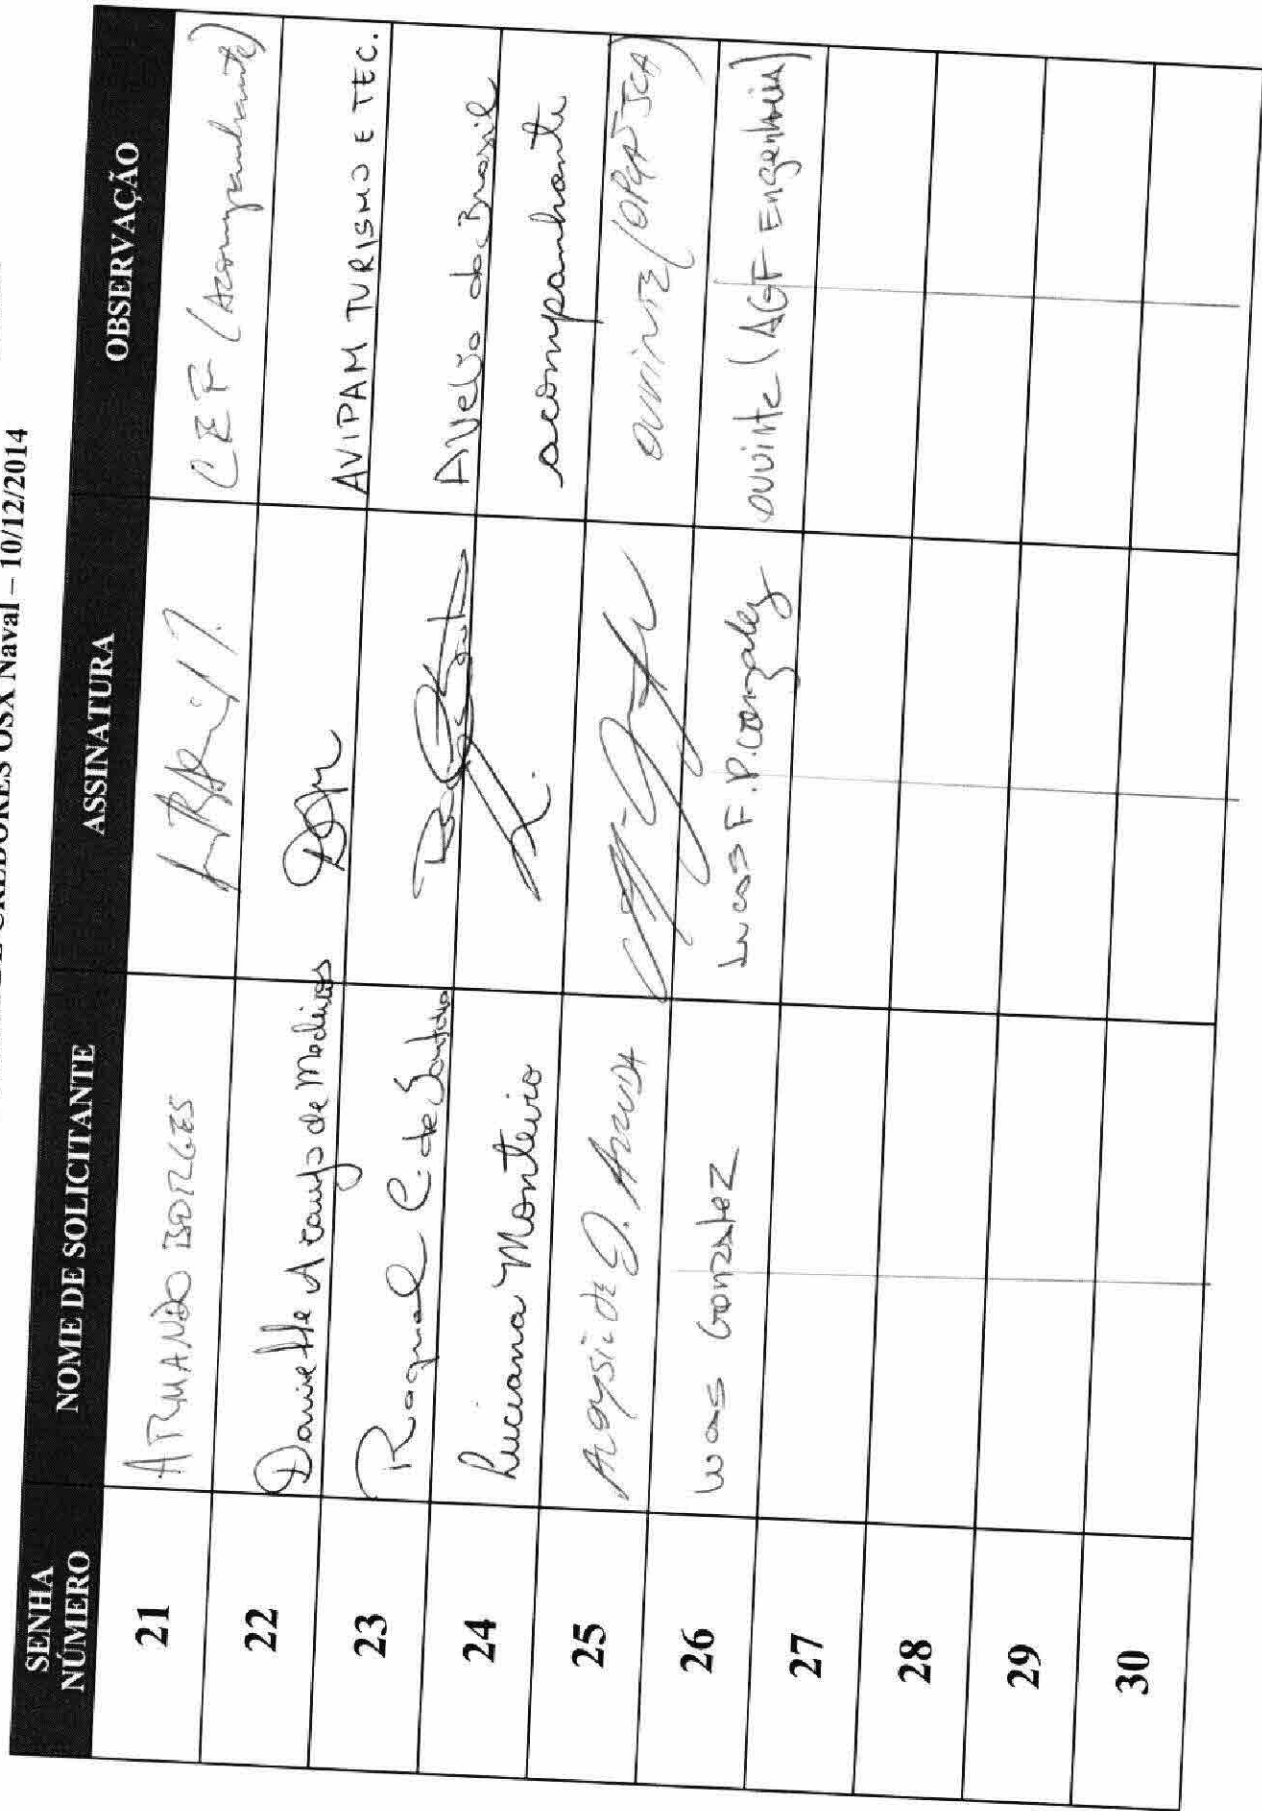 DE CREDORES OSX Naval – 10/12/2014
SENHA NÚMERO NOME DE SOLICITANTE ASSINATURA OBSERVAÇÃO
21 ARMANDO BORGES CEF (Acompanhante)
22 Danielle Araujo de Medeiros AVIPAM TURISMO E TEC.
23 Raquel C. de Santana do Brasil
24 Luciana Monteiro acompanhante
25 de J. Arruda ouvinte
26 Lucas Gonzalez Lucas F. P. Gonzalez ouvinte (AGF Engenharia)
27
28
29
30